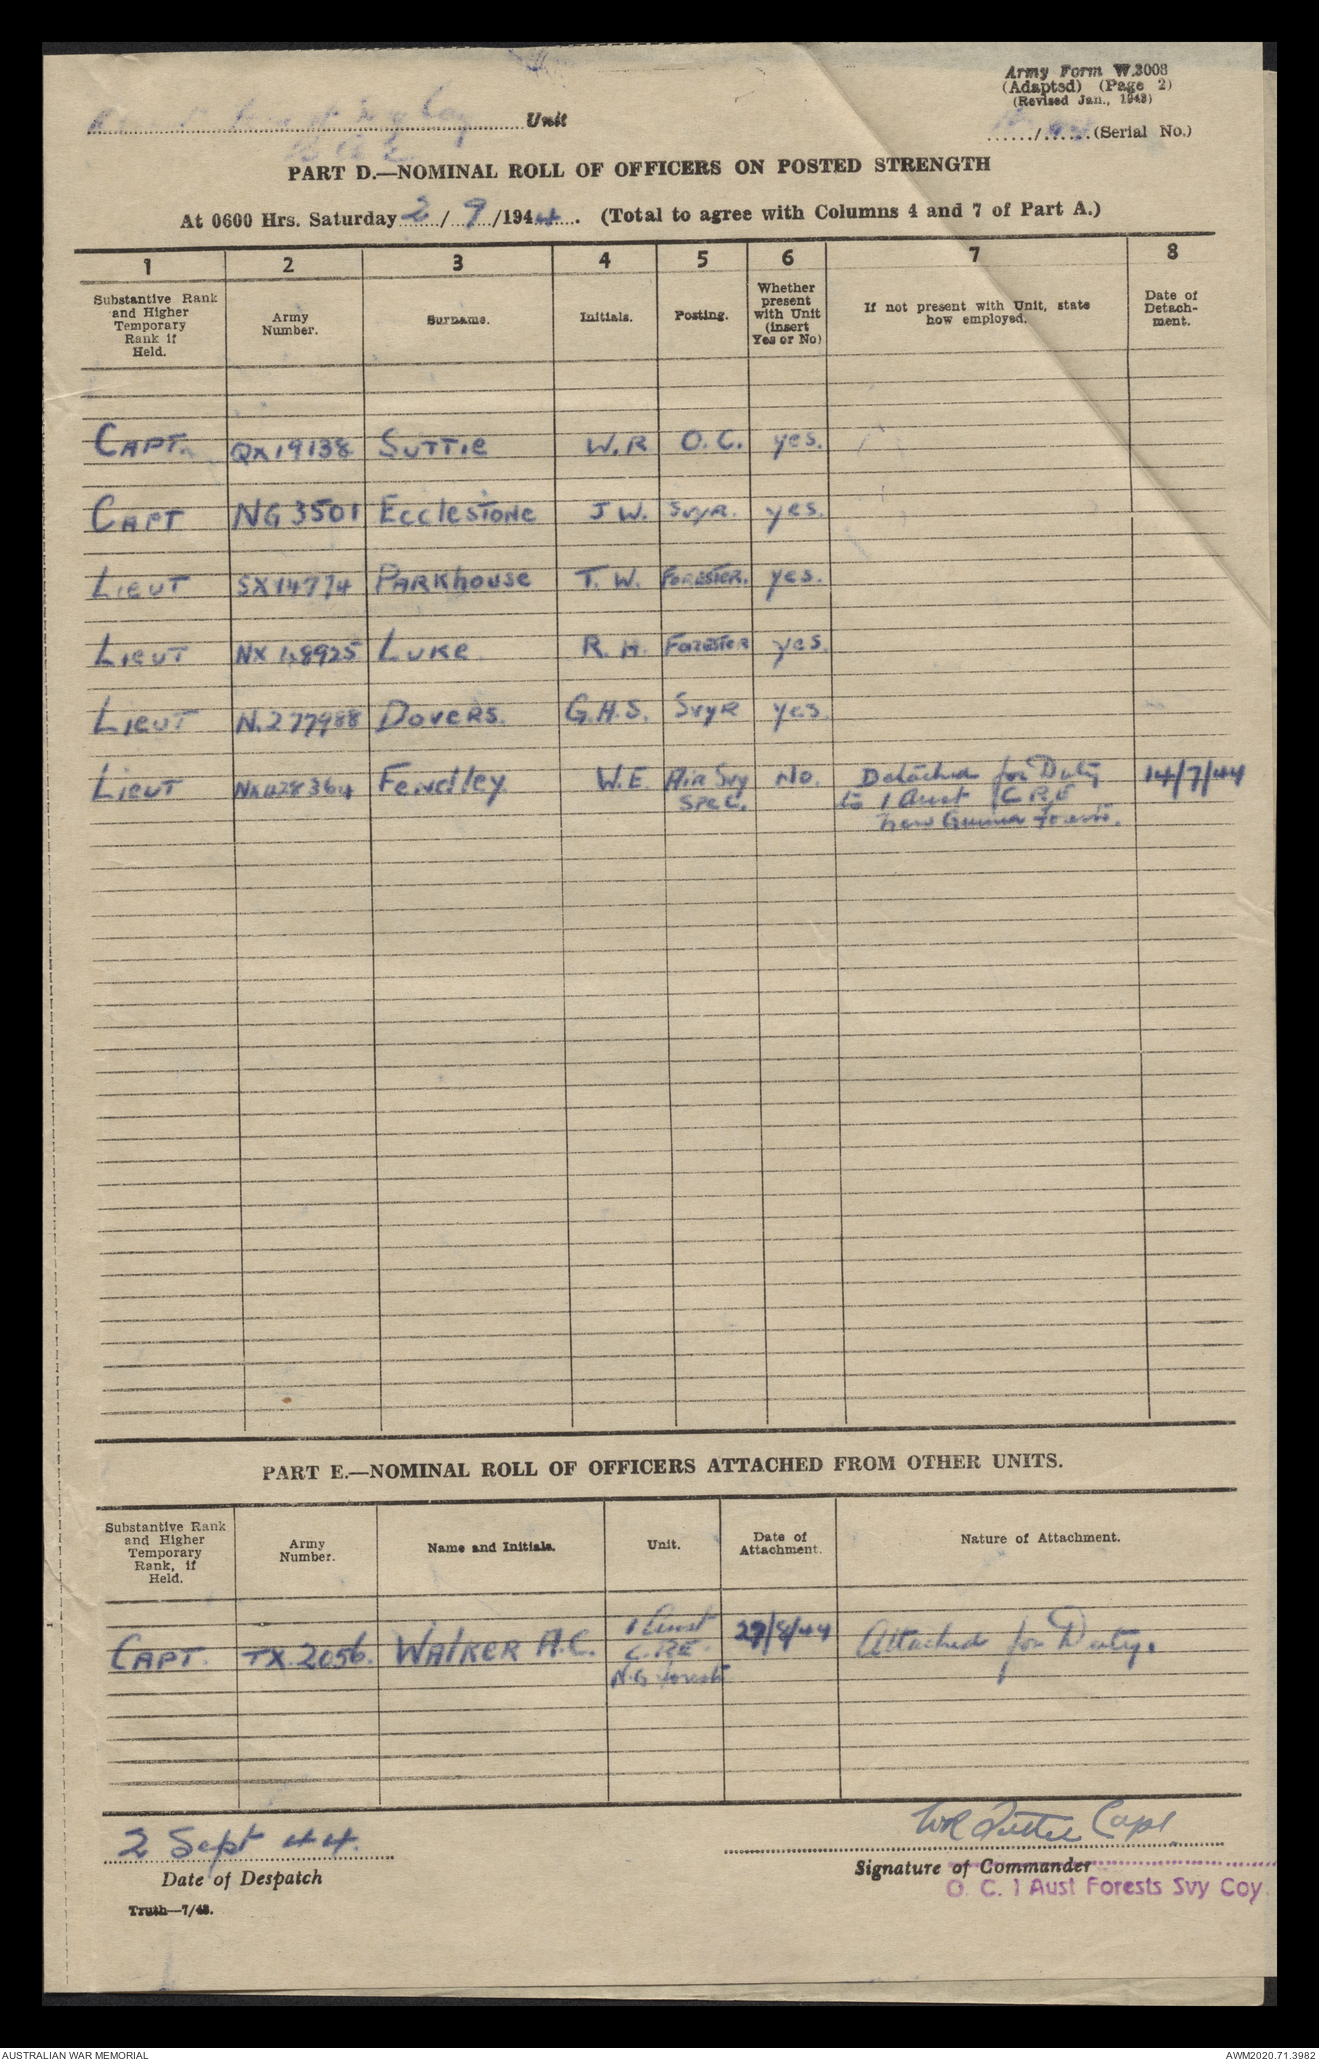 Army Form W.3008
(Adapted) (Page 2)
(Revised Jan., 1943)
Unit
....../......(Serial No.)
PART D.—NOMINAL ROLL OF OFFICERS ON POSTED STRENGTH
At 0600 Hrs. Saturday 2/9/1944. (Total to agree with Columns 4 and 7 of Part A.)
1 2 3 4 5 6 7 8
Substantive Rank and Higher Temporary Rank if Held. Army Number. Surname. Initials. Posting. Whether present with Unit (insert Yes or No) If not present with Unit, state how employed. Date of Detachment.
CAPT. QX19138 SUTTIE W.R O.C. yes.
CAPT NG3501 ECCLESTONE J W. SVYR. yes.
LIEUT SX14774 PARKHOUSE T. W. FORESTER. yes.
LIEUT NX148925 LUKE R. H. FORESTER yes.
LIEUT N.277988 DOVERS. G.H.S. SVYR yes.
LIEUT NX128364 FENDLEY. W.E. Air Svy No. Detached for Duty 14/7/44
SPEC. to 1 Aust CRE
New Guinea Forests.
PART E.—NOMINAL ROLL OF OFFICERS ATTACHED FROM OTHER UNITS.
Substantive Rank and Higher Temporary Rank, if Held. Army Number. Name and Initials. Unit. Date of Attachment. Nature of Attachment.
CAPT. TX.2056. WALKER A.C. 1 Aust 29/8/44 Attached for Duty.
C.R.E.
N.G Forests
2 Sept 44. WR Suttie Capt.
Date of Despatch Signature of Commander
O. C. 1 Aust Forests Svy Coy.
Truth—7/43.
AUSTRALIAN WAR MEMORIAL AWM2020.71.3982